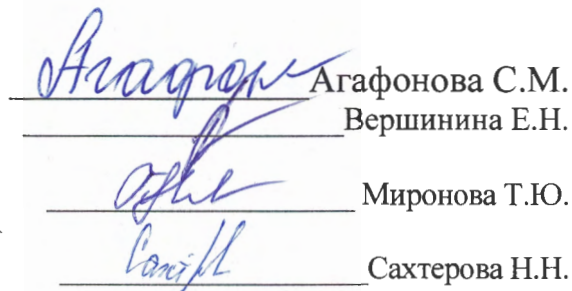 Агафонова С.М.
Вершинина Е.Н.
Миронова Т.Ю.
Сахтерова Н.Н.